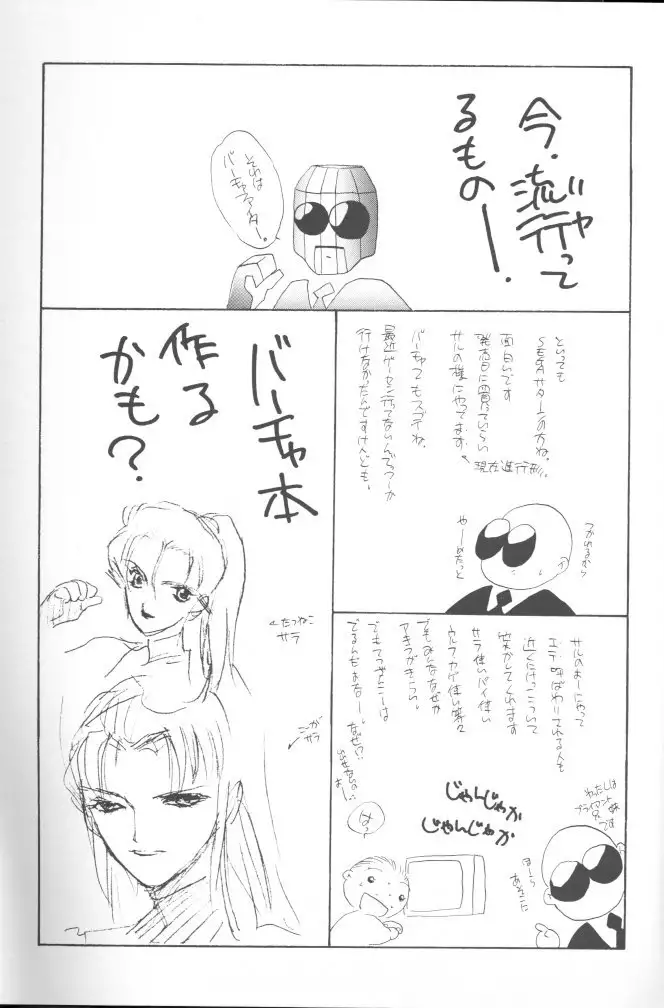 今、流行って
ジャ
るものー!
それは
バーチャファイター。
といっても
SEGAサターンの方ね。
面白いです
発売日に買っていらい
サルの様にやってます。
現在進行形。
バーチャでもスゴイね。
最近ゲーセン行ってないんで
行けなかったんですけども。
つかれるから
やーめたっと
バーチャ本
作る
かも?
←たつねこ
サラ
こが
サラ
サルのよーにやって
エテ呼ばわりされる人も
近くにけっこういて
笑かしてくれます
サラ使いパイ使い
ウルフカゲ使い等々
でもみんななぜか
アキラがきらい。
でもてつざんこーは
でるんだよなー。なぜ!?
じゃんじゃか
じゃんじゃか
はっ
わたしは
プライアンと
です
ほーら
あそこに